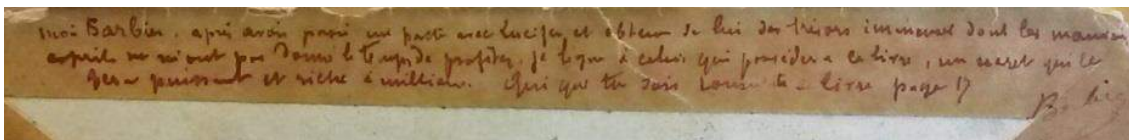 moi Barbier, après avoir passé un pacte avec Lucifer et obtenu de lui des trésors immenses dont les mauvais
esprits ne m'ont pas donné le temps de profiter, je lègue à celui qui possédera ce livre, un secret qui le
fera puissant et riche à millions. Qui que tu sois ce livre page 17